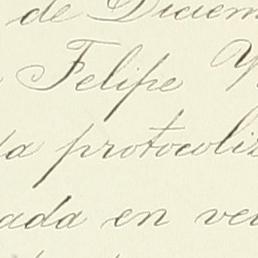 de Diciem
Felipe Y
da protocoliz
ada en vei